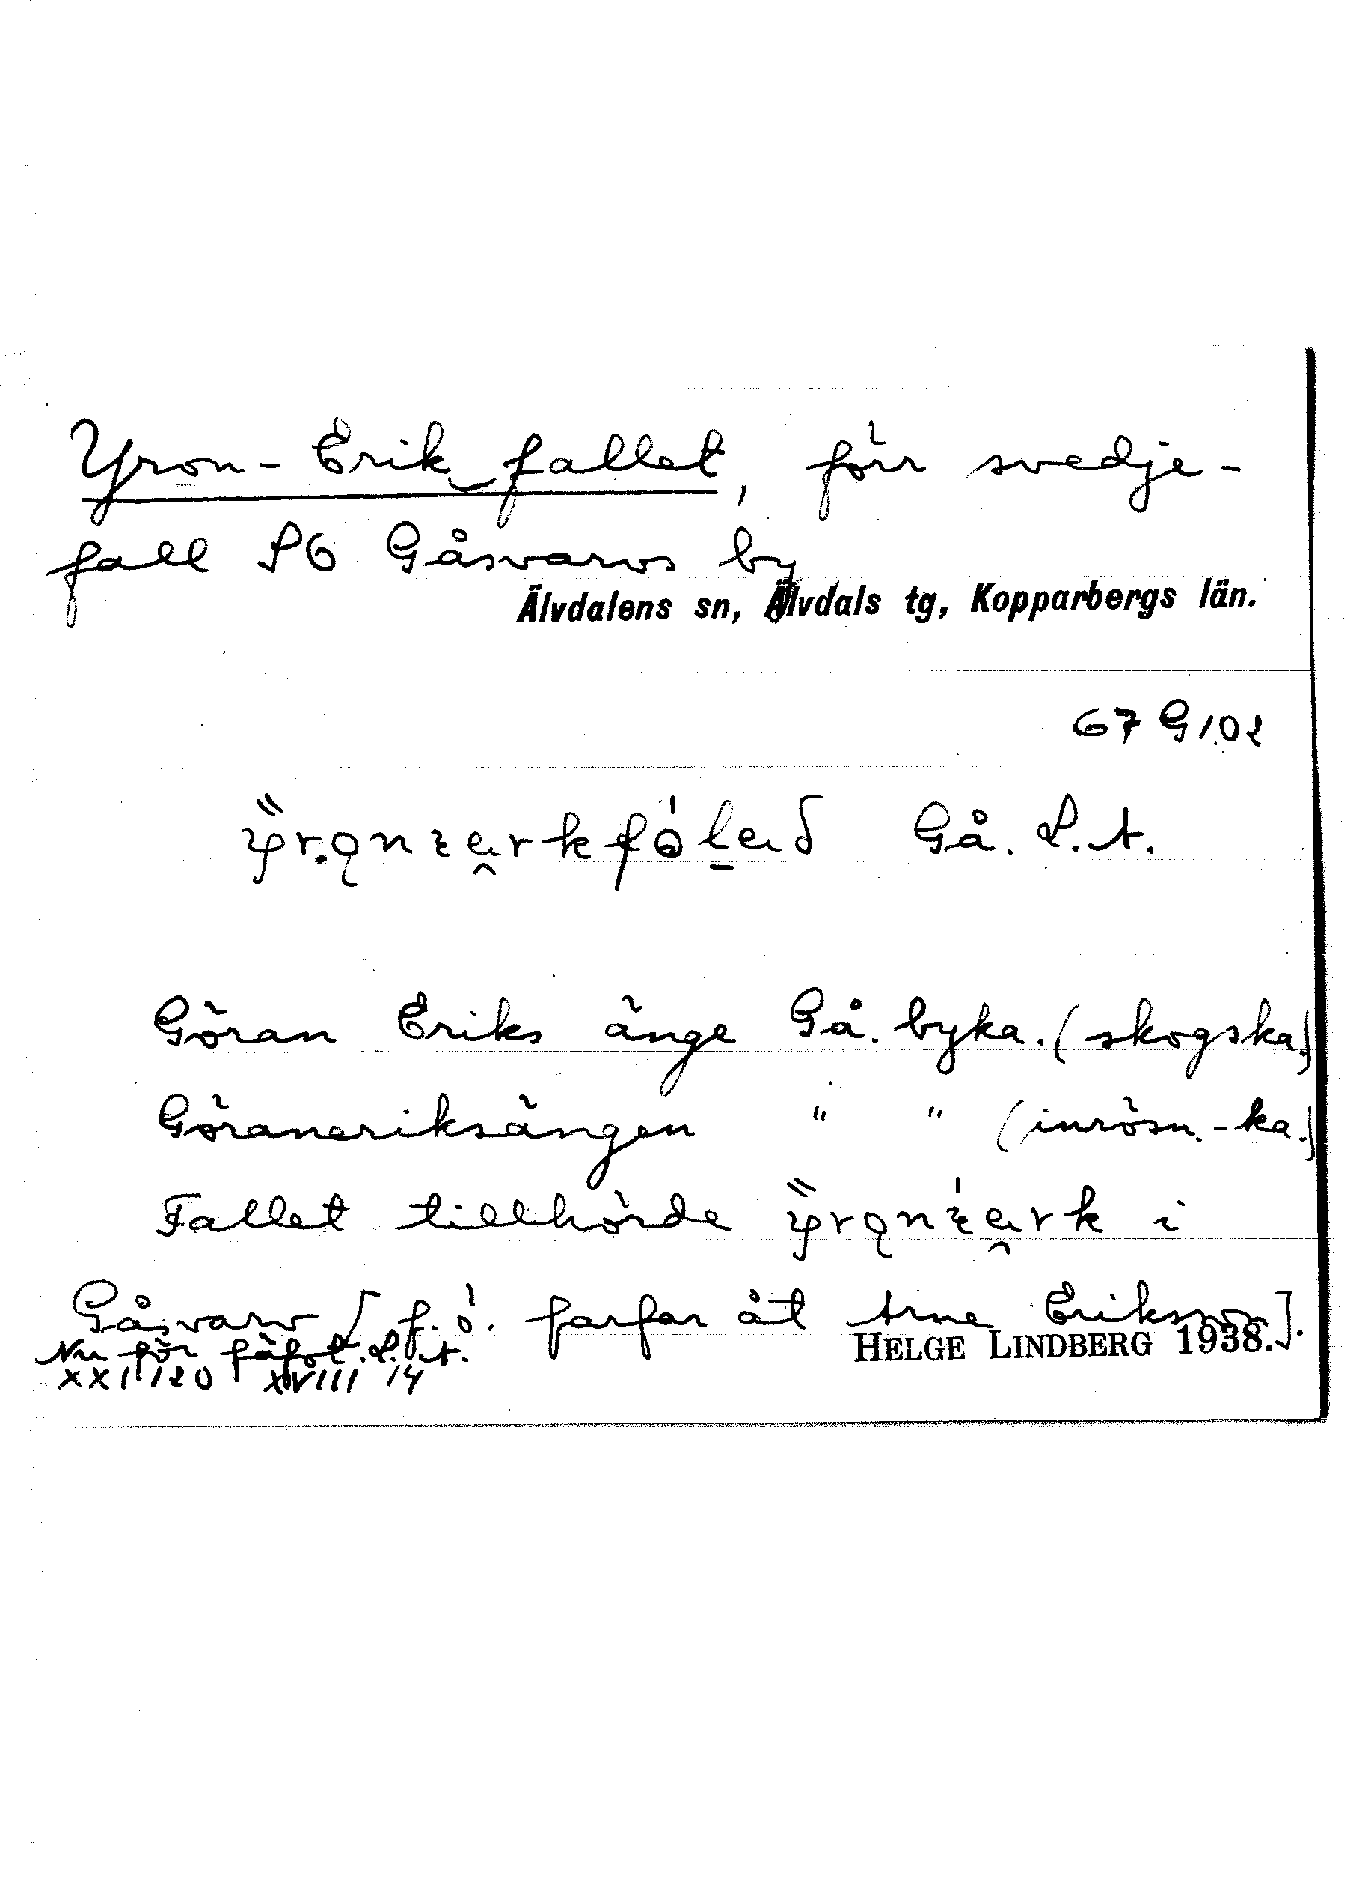 Yron-Erik fallet, förr svedje-
fall SO Gåsvarvs by
Älvdalens sn, Älvdals tg, Kopparbergs län.
67 G 102
Gå. L.A.
Göran Eriks änge Gå. byka. (skogska.)
Göraneriksängen " " (inrösn.-ka.)
Fallet tillhörde i
Gåsvarv [f.ö. farfar åt Arne Eriksson].
Nu för fäfot. L. A.
HELGE LINDBERG 1938.
XXI 120 XVIII 14